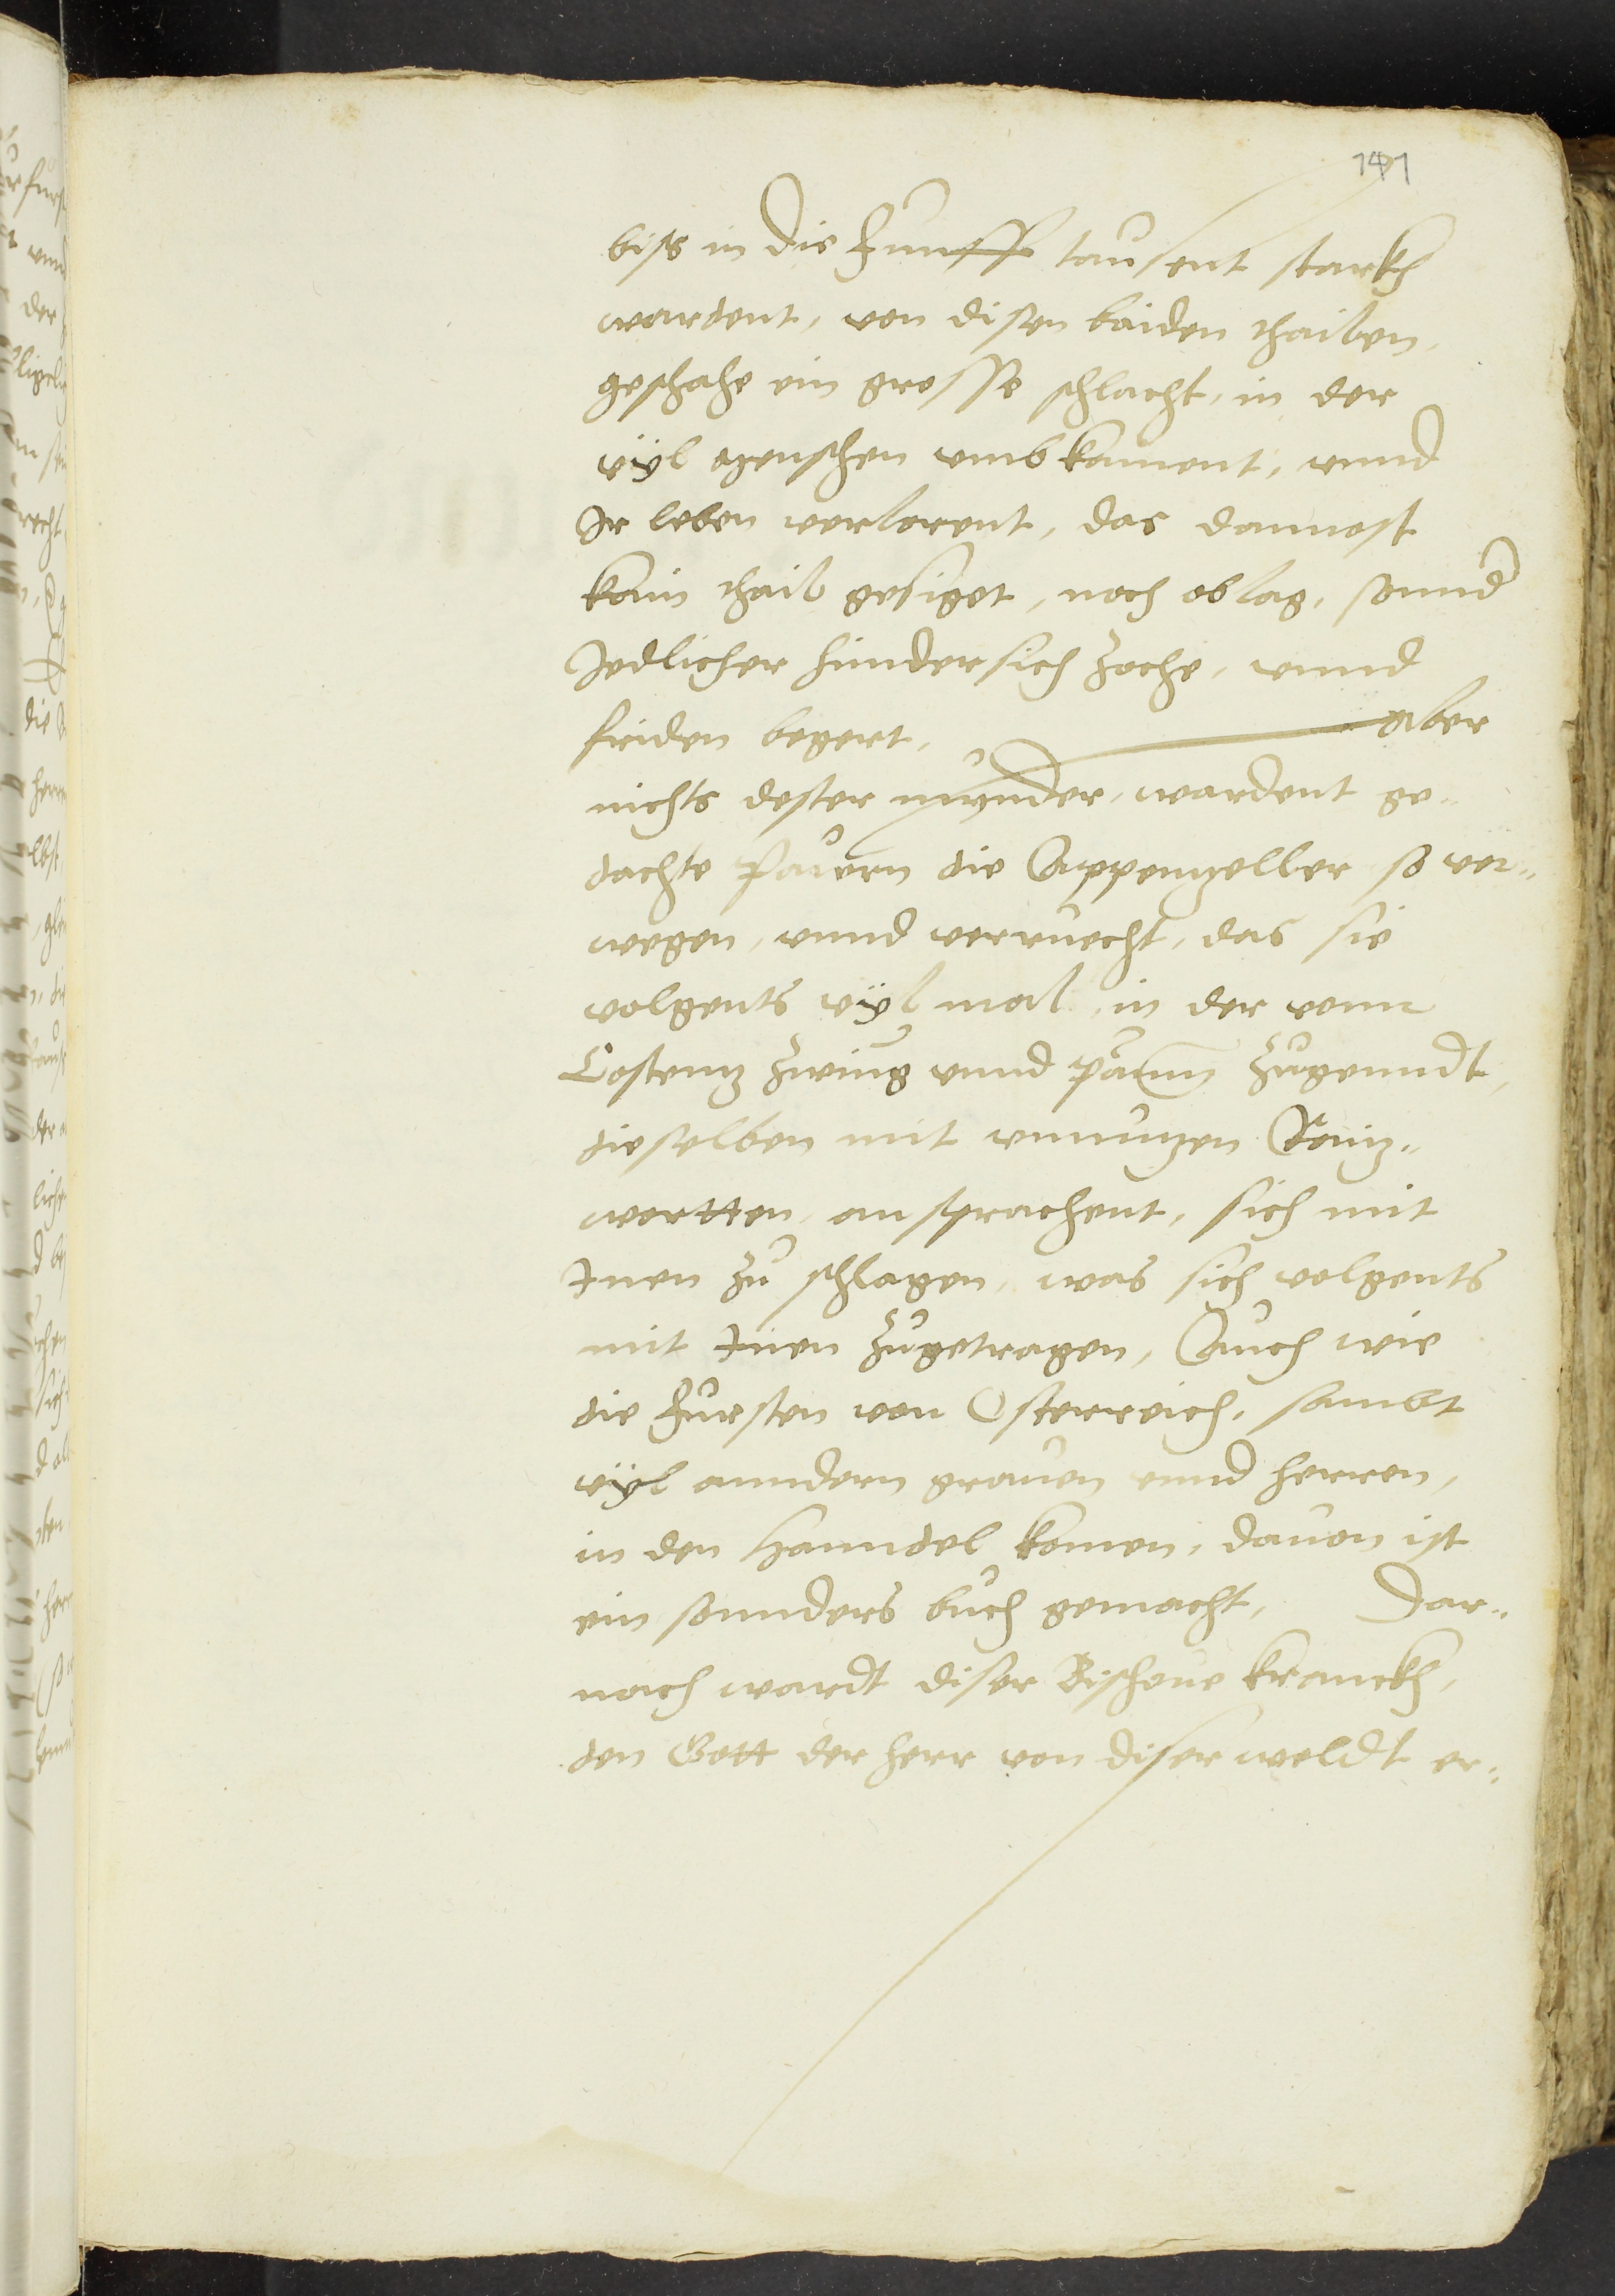 141
biss in die Funff tausent starkh
wardent, von disen baiden thailen,
geschahe ein grosse schlacht, in der
vÿl menschen umbkament, unnd
Ir leben verlorent, das dannost
kain thail gesiget, noch oblag, sonnd
Jedlicher hindersich zoche, unnd
friden begert, Aber
nichts dester mÿnder, wardent ge-
dachte Pauern die Appenzeller so ver-
wegen, unnd verruecht, das sie
volgents vÿl mal, in der vonn
Costentz zwing unnd pänn zugenndt,
dieselben mit unnutzen Raitz-
wortten, ansprachent, sich mit
Inen zu schlagen, was sich volgents
mit Inen zugetragen, Auch wie
die Fursten von Osterreich, sambt
vÿl anndern grauen unnd herren,
in den Hanndel komen, dauon ist
ein sonnders buch gemacht, Dar-
nach wardt diser Bischoue kranckh,
den Gott der herr von diser weldt er-